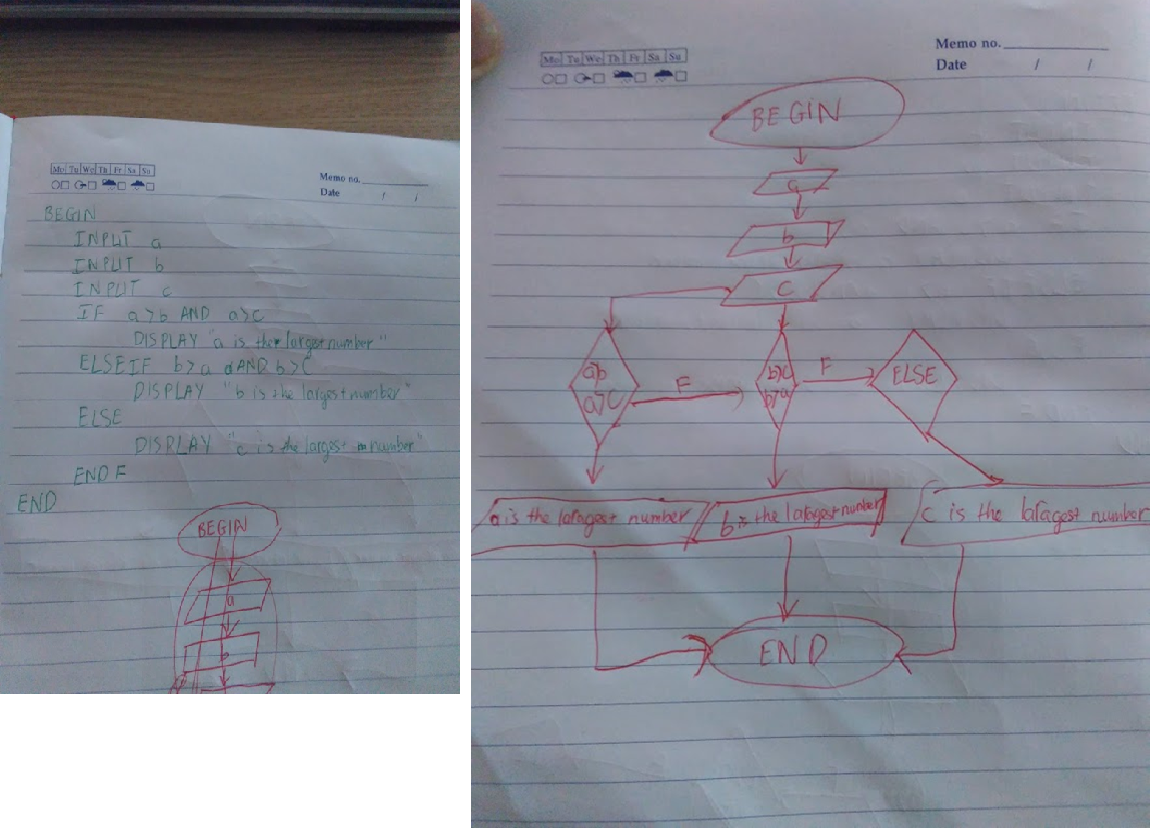 Mo Tu We Th Fr Sa Su
Memo no.
Date / /
BEGIN
INPUT a
INPUT b
INPUT c
IF a>b AND a>c
DISPLAY "a is the largest number"
ELSEIF b>a AND b>c
DISPLAY "b is the largest number"
ELSE
DISPLAY "c is the largest number"
END F
END
BEGIN
a
Mo Tu We Th Fr Sa Su
Memo no.
Date / /
BEGIN
a
b
C
a>b
a>C
F
b>c
b>a
F
ELSE
a is the laragest number
b is the laragest number
c is the laragest number
END